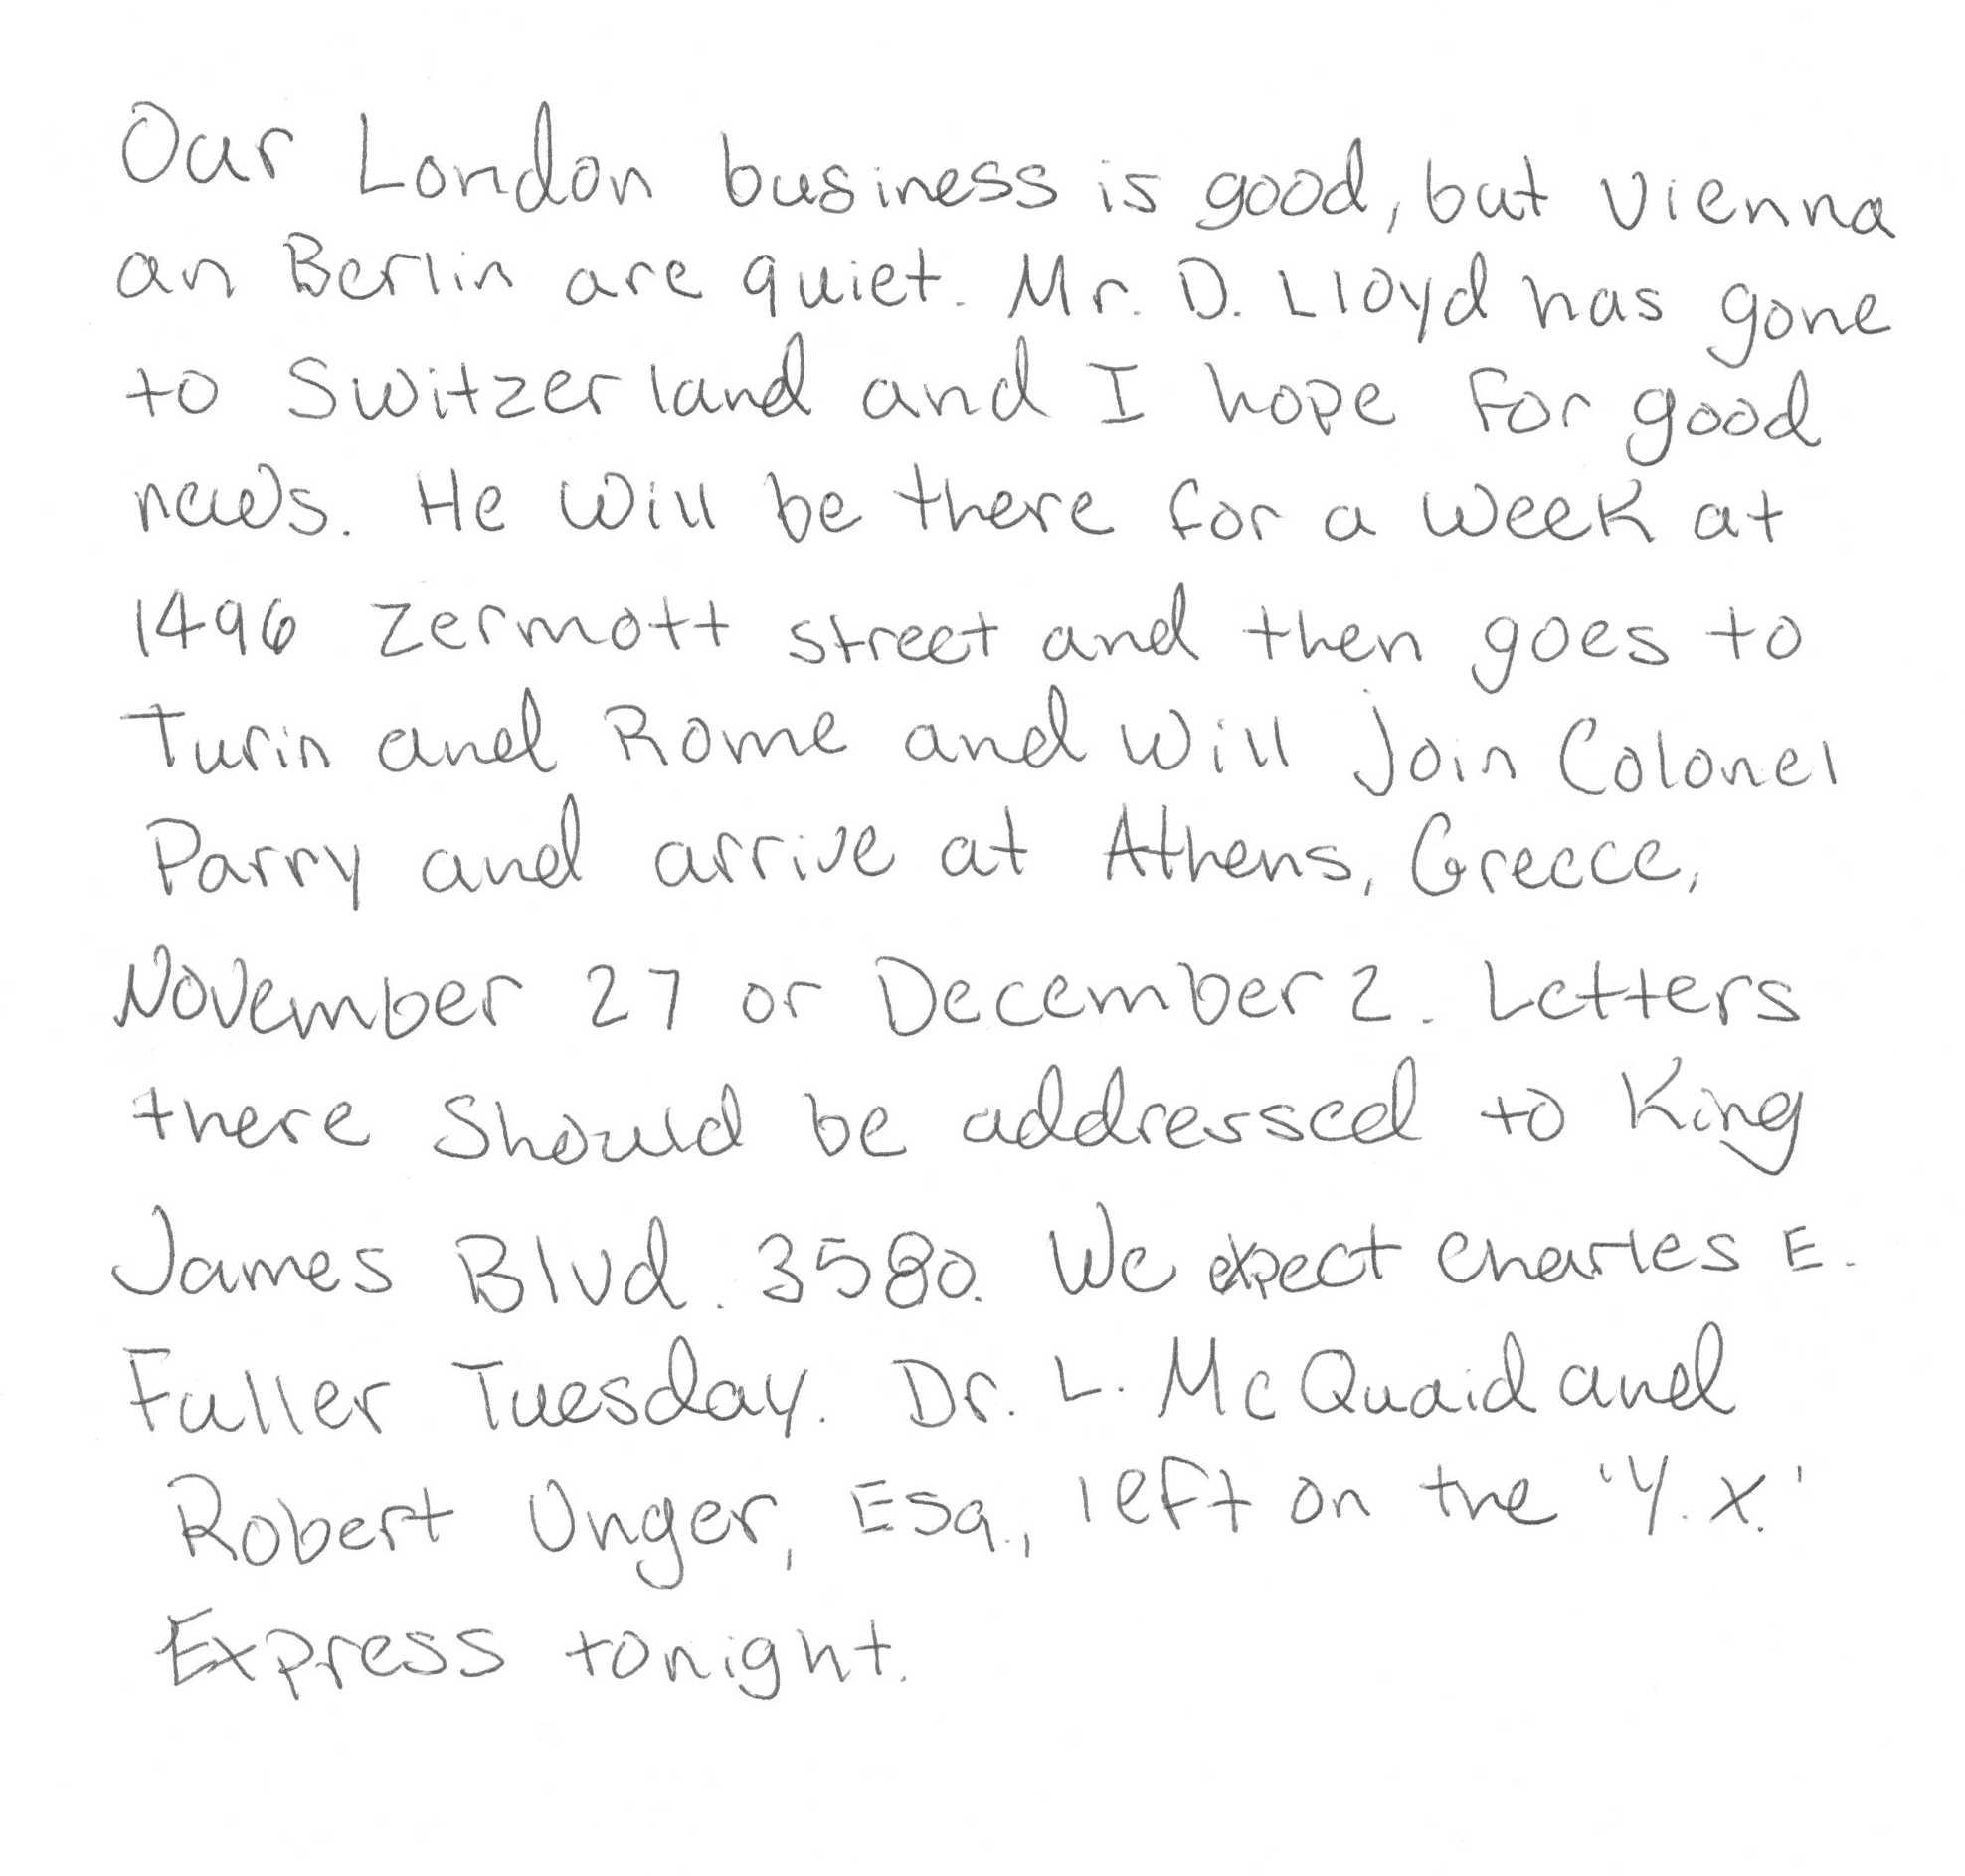 Our London business is good, but Vienna
an Berlin are quiet. Mr. D. Lloyd has gone
to Switzerland and I hope for good
news. He will be there for a week at
1496 Zermott street and then goes to
Turin and Rome and will join Colonel
Parry and arrive at Athens, Greece,
November 27 or December 2. Letters
there should be addressed to King
James Blvd. 3580. We expect Charles E.
Fuller Tuesday. Dr. L. McQuaid and
Robert Unger, Esq., left on the 'Y.X.'
Express tonight.